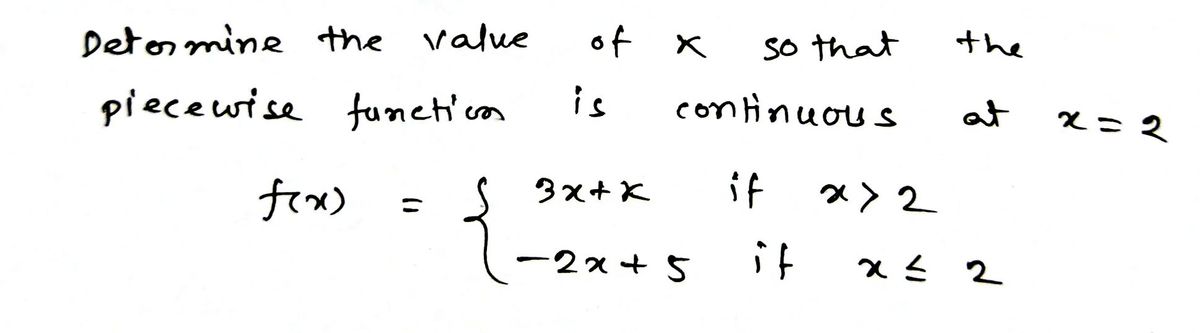 Determine the value of K so that the
piecewise function is continuous at x = 2
f(x) = { 3x+K if x > 2
-2x + 5 if x ≤ 2